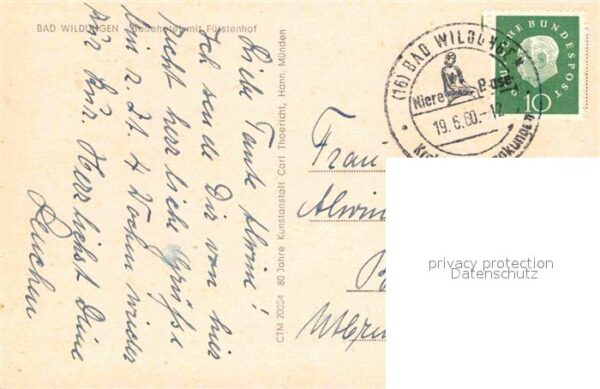 BAD WILDUNGEN - Badehotel mit Fürstenhof
Liebe Tante Alwine!
Ich sende Dir von hier
recht herzliche Grüße
bin z. Zt. 4 Wochen wieder
zur Kur. Herzlichst Deine
CTM 20204 80 Jahre Kunstanstalt Carl Thoericht, Hann. Münden
(16) BAD WILDUNGEN
Niere Blase
19.6.60.-12
DEUTSCHE BUNDESPOST
10
Frau
Alwin
privacy protection
Datenschutz